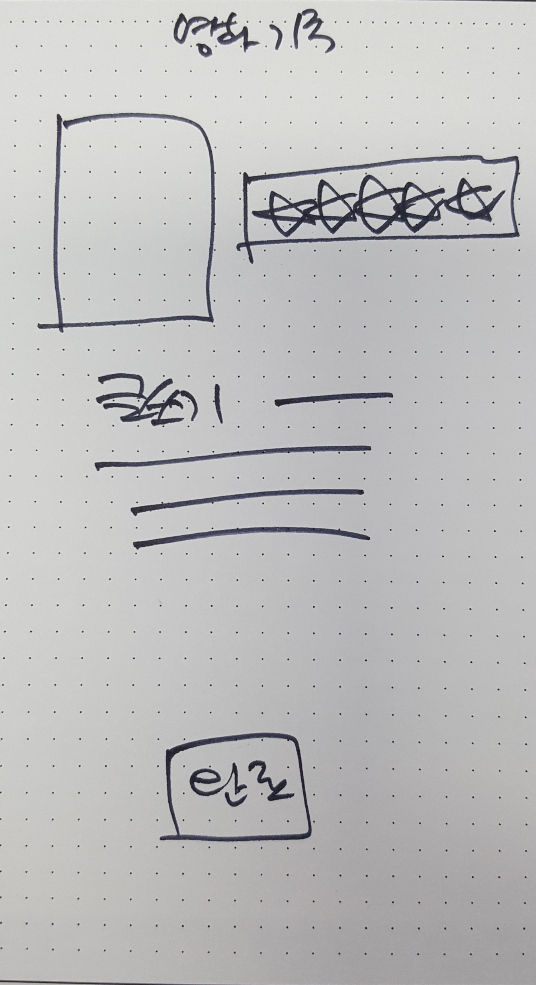 영화 기록
글쓰기
완료